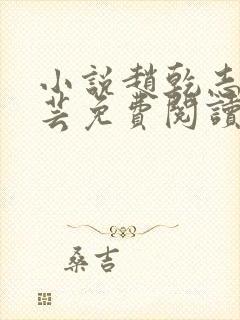 小說趙乾志
芸免費閱讀
桑吉